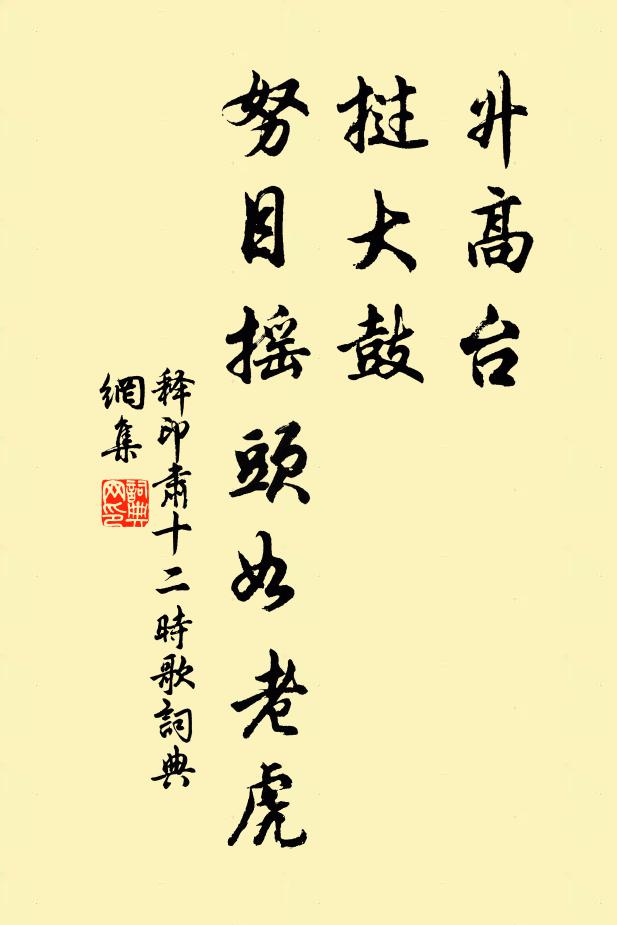 升高台
挞大鼓
努目摇頭如老虎
释印肃十二時歌詞典
網集
詞典网印